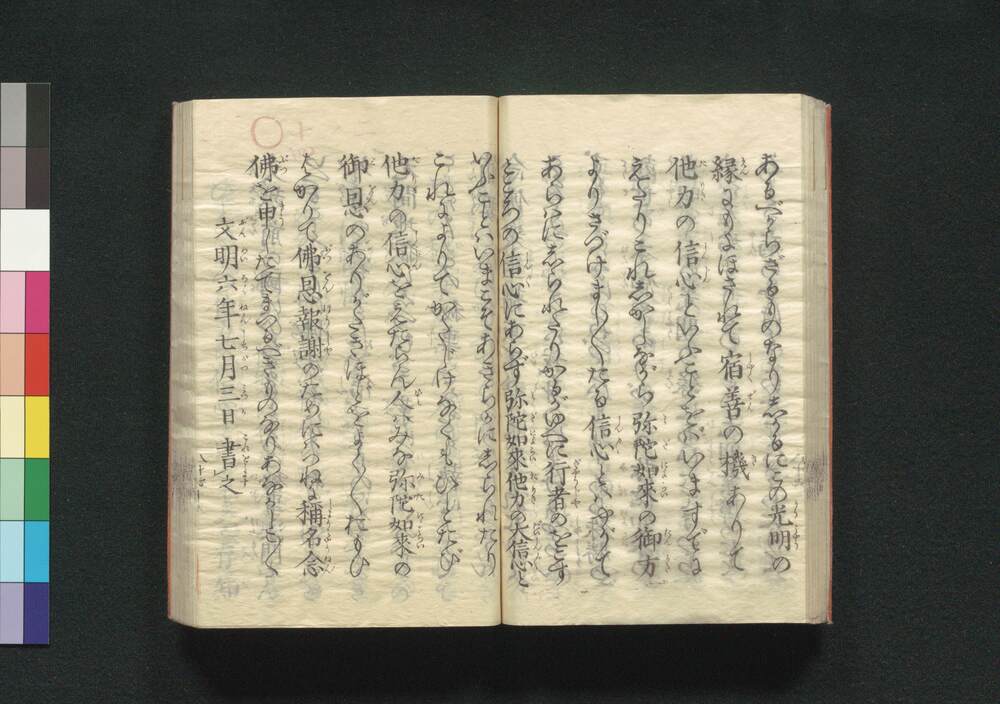 あるべからざるものなりしかるにこの光明の
縁にもよほされて宿善の機ありて
他力の信心といふことをばいますでに
えたりこれしかしながら弥陀如来の御方
よりさづけまし〳〵たる信心とはやがて
あらはにしられたりかるがゆへに行者のをこす
ところの信心にあらず弥陀如来他力の大信心と
いふことはいまこそあきらかにしられたり
これによりてかたじけなくもひとたび
他力の信心をえたらん人はみな弥陀如来の
御恩のありがたきほどをよく〳〵おもひ
はかりて佛恩報謝のためにはつねに稱名念
佛を申したてまつるべきものなりあなかしこ〳〵
文明六年七月三日書之